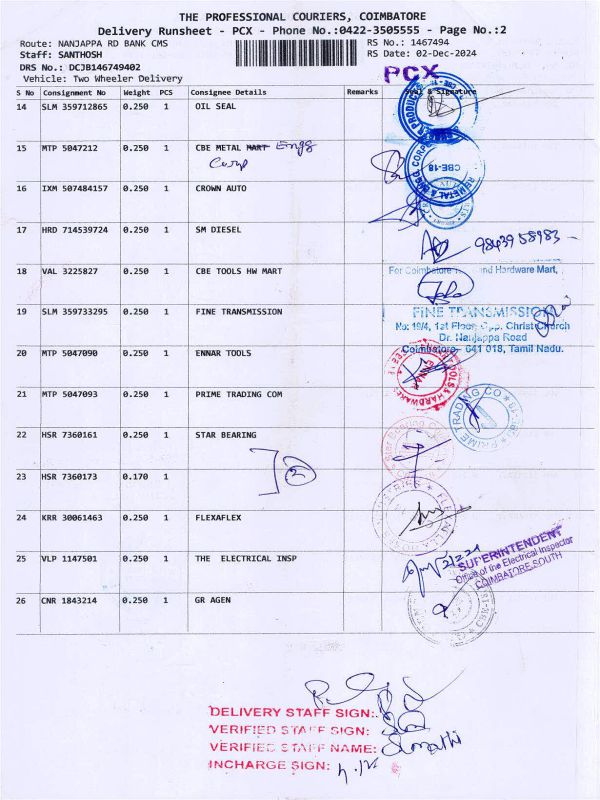 THE PROFESSIONAL COURIERS, COIMBATORE
Delivery Runsheet - PCX - Phone No.:0422-3505555 - Page No.:2
Route: NANJAPPA RD BANK CMS RS No.: 1467494
Staff: SANTHOSH RS Date: 02-Dec-2024
DRS No.: DCJB146749402
Vehicle: Two Wheeler Delivery
PCX
S No Consignment No Weight PCS Consignee Details Remarks Seal & Signature
14 SLM 359712865 0.250 1 OIL SEAL
15 MTP 5047212 0.250 1 CBE METAL MART Engg
Corp
CBE-18
16 IXM 507484157 0.250 1 CROWN AUTO
17 HRD 714539724 0.250 1 SM DIESEL
9843958983
18 VAL 3225827 0.250 1 CBE TOOLS HW MART
For Coimbatore and Hardware Mart,
19 SLM 359733295 0.250 1 FINE TRANSMISSION
FINE TRANSMISSION
No: 19/4, 1st Floor, Opp. Christ Church
Dr. Nanjappa Road
Coimbatore - 641 018, Tamil Nadu.
20 MTP 5047090 0.250 1 ENNAR TOOLS
ENNAR TOOLS & HARDWARES
21 MTP 5047093 0.250 1 PRIME TRADING COM
PRIME TRADING CO
22 HSR 7360161 0.250 1 STAR BEARING
Star Bearing
2
23 HSR 7360173 0.170 1
24 KRR 30061463 0.250 1 FLEXAFLEX
25 VLP 1147501 0.250 1 THE ELECTRICAL INSP
SUPERINTENDENT
Office of the Electrical Inspector
COIMBATORE SOUTH
26 CNR 1843214 0.250 1 GR AGEN
DELIVERY STAFF SIGN:
VERIFIED STAFF SIGN:
VERIFIED STAFF NAME:
INCHARGE SIGN: